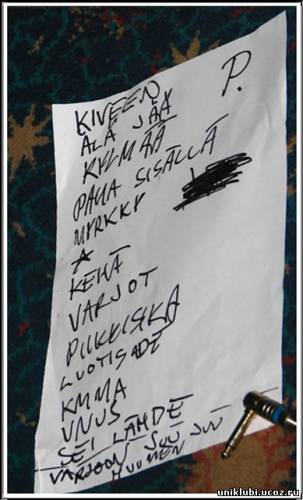 KIVEEN
P.
ÄLÄ JÄÄ
KYLMÄÄ
PAHA SISÄLLÄ
MYRKKY
A
KEHÄ
VARJOT
PIIKKISIKA
LUOTISADE
KMMA
VNUS
SEI LÄHDE
VARJOON JUU JUU
HUUMEN
uniklubi.ucoz.ru